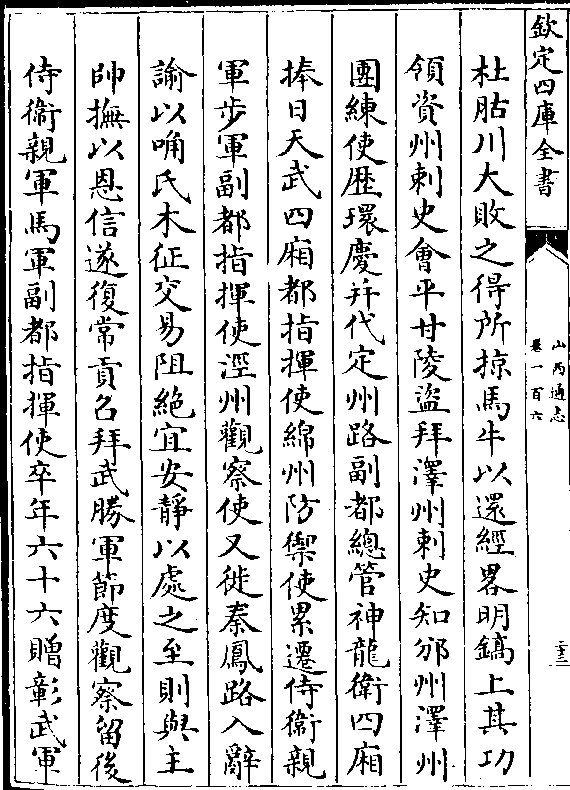 欽定四庫全書
山西通志
卷一百六
二十三
杜胋川大敗之得所掠馬牛以還經畧明鎬上其功
領資州刺史會平甘陵盜拜澤州刺史知邠州澤州
團練使歴環慶并代定州路副都總管神龍衛四廂
捧日天武四廂都指揮使綿州防禦使累遷侍衛親
軍步軍副都指揮使涇州觀察使又徙秦鳳路入辭
諭以唃氏木征交易阻絶宜安靜以處之至則與主
帥撫以恩信遂復常貢召拜武勝軍節度觀察留後
侍衛親軍馬軍副都指揮使卒年六十六贈彰武軍